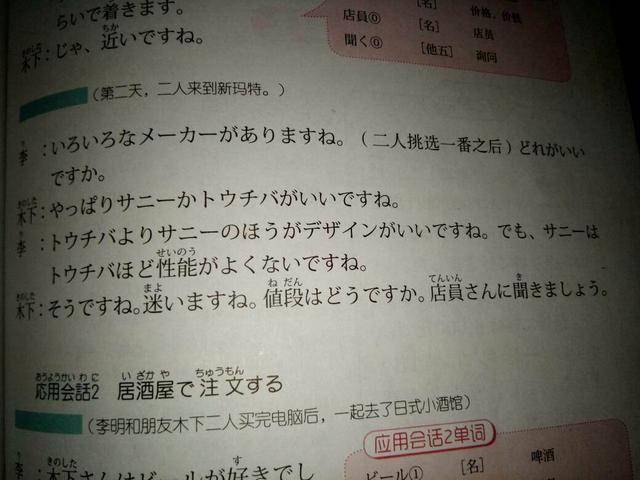 らいで着きます。
木下：じゃ、近いですね。
[名] 价格，价钱
店员⓪ [名] 店员
聞く⓪ [他五] 询问
（第二天，二人来到新玛特。）
李：いろいろなメーカーがありますね。（二人挑选一番之后）どれがいい
ですか。
木下：やっぱりサニーかトウチバがいいですね。
李：トウチバよりサニーのほうがデザインがいいですね。でも、サニーは
トウチバほど性能がよくないですね。
木下：そうですね。迷いますね。値段はどうですか。店員さんに聞きましょう。
応用会話2 居酒屋で注文する
（李明和朋友木下二人买完电脑后，一起去了日式小酒馆）
应用会话2单词
ビール① [名] 啤酒
李：木下さんはビールが好きでし